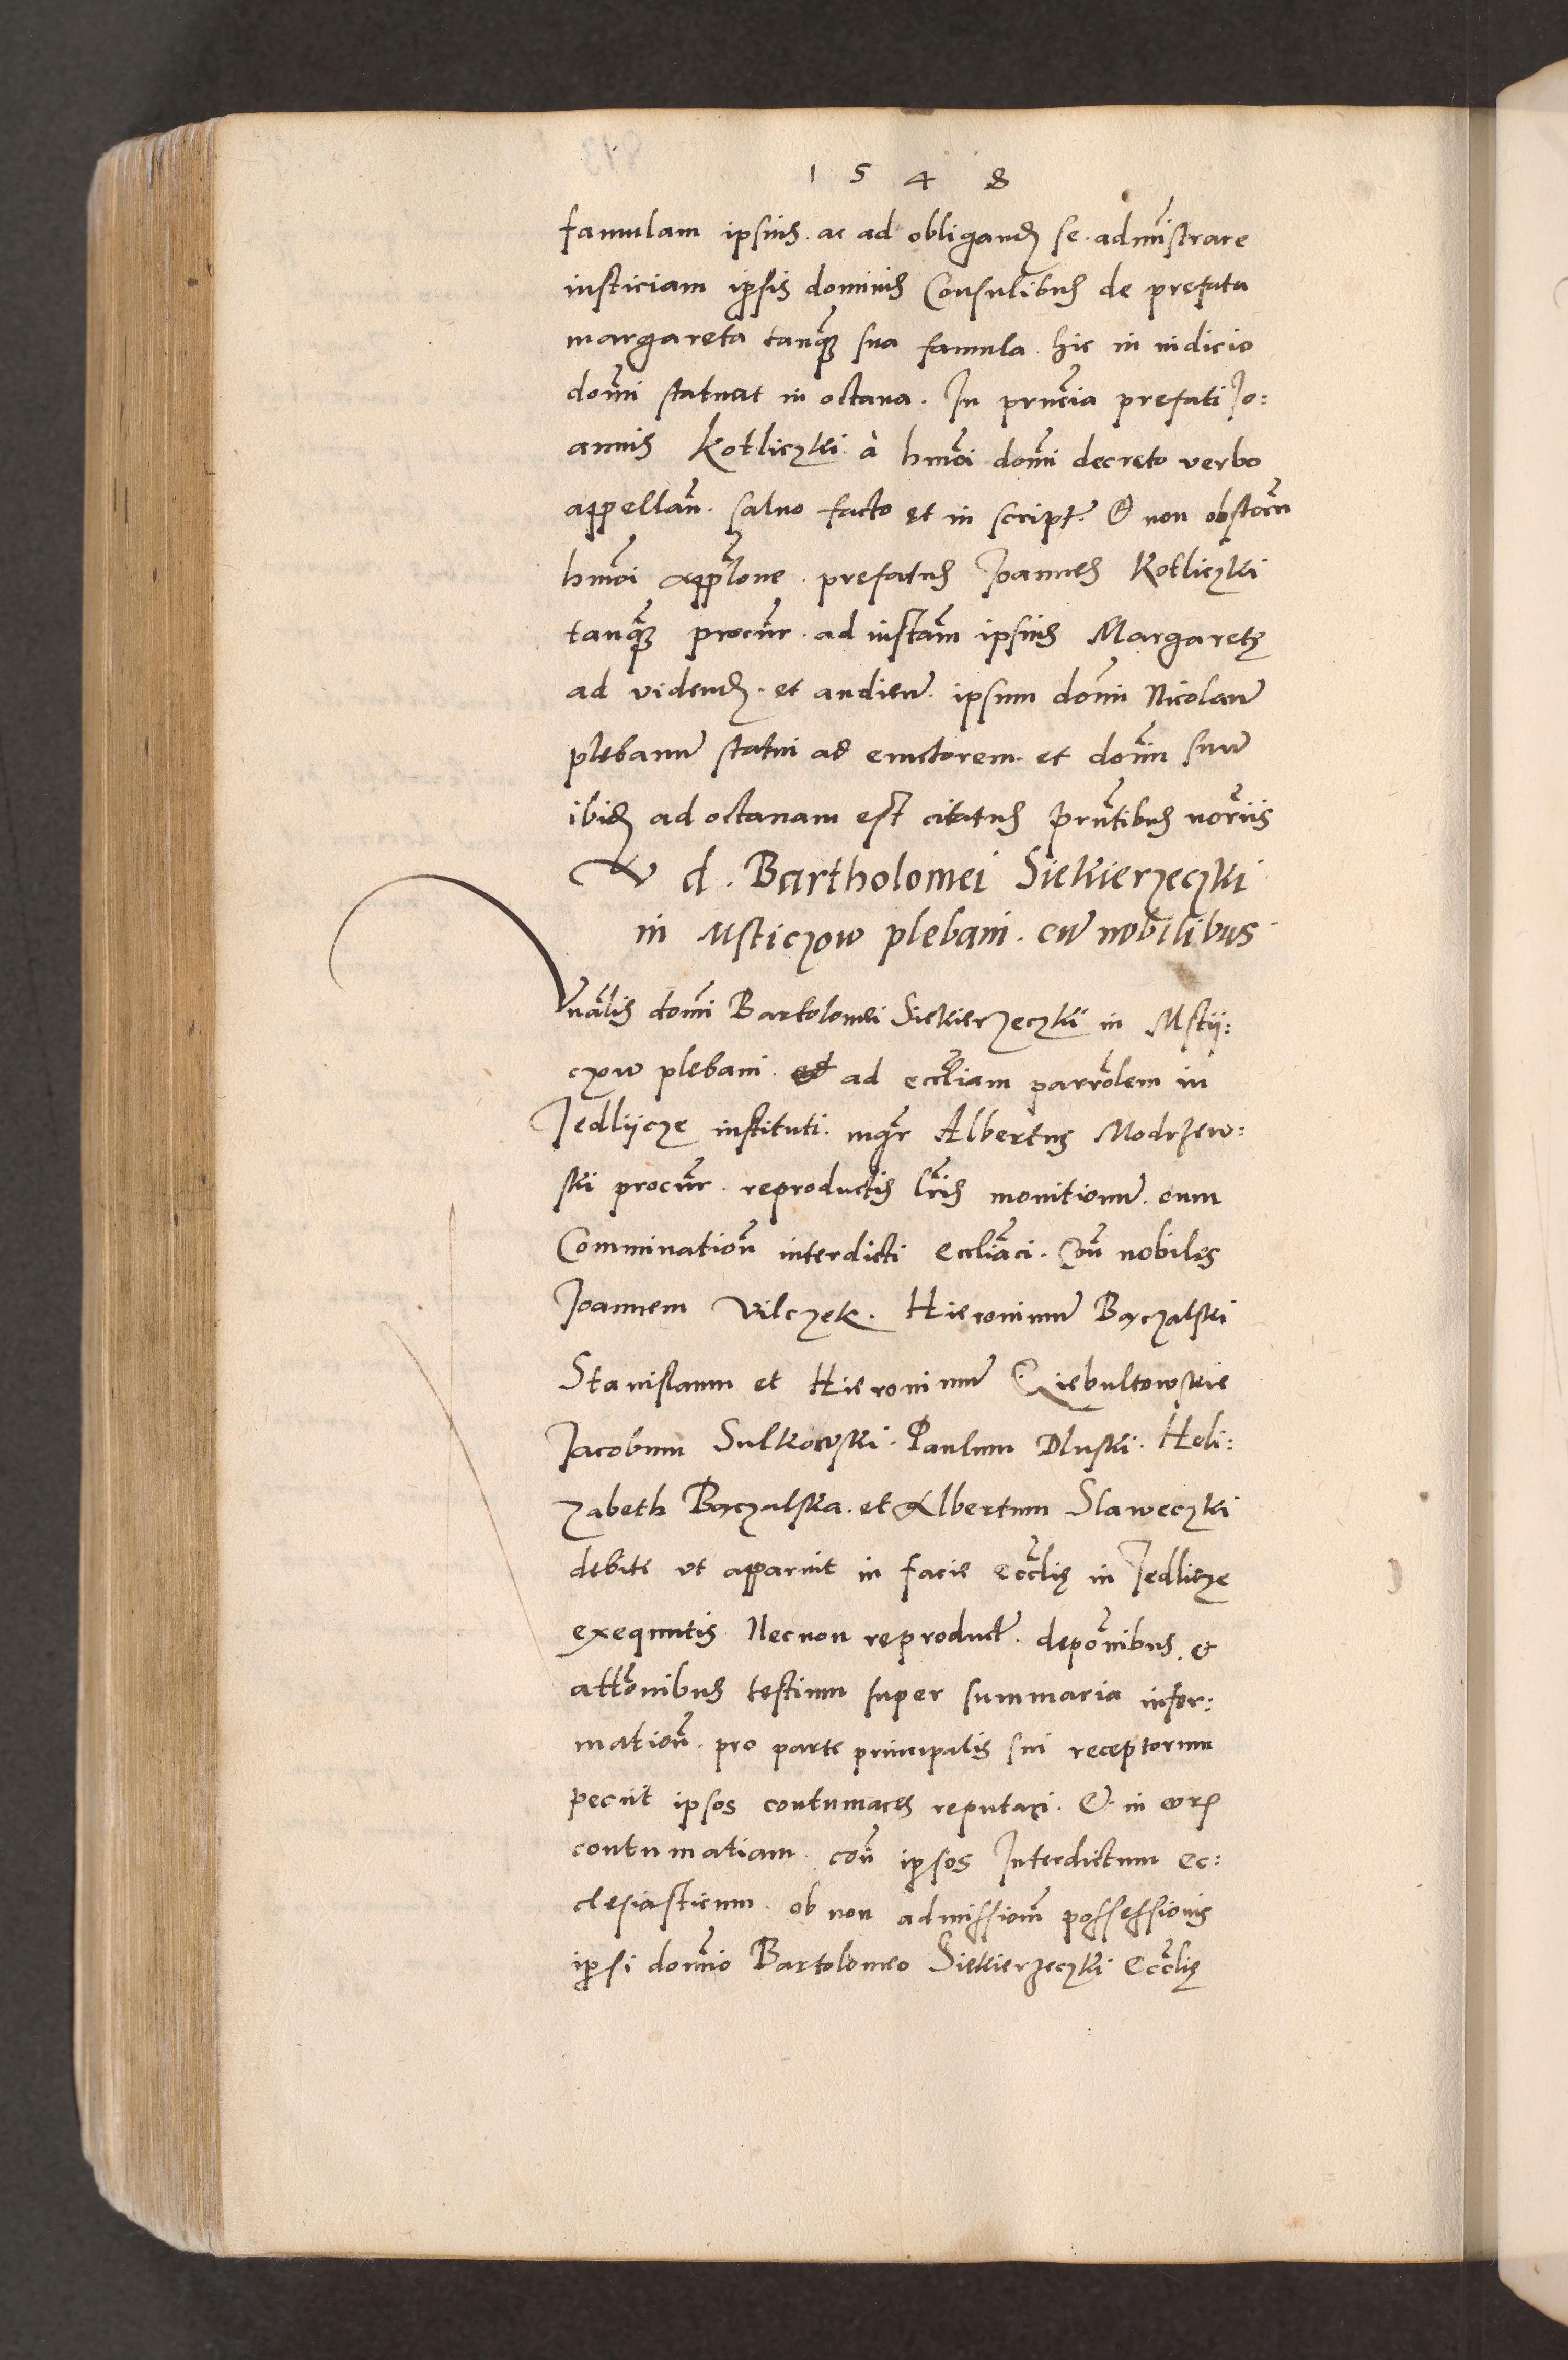 1 5 4 8
famulam ipsius. ac ad obligand se. admistrare
iusticiam ipsis dominis Consulibus de prefata
margareta tanq̃ sua famula. hic in iudicio
dom̃i statuat in octaua. In prñcia prefati Jo:
annis Kotliczki. à hm̃oi dom̃i decreto verbo
appellañ. saluo facto et in script. & non obstañ
hm̃oi appl̃one. prefatus Joannes Kotliczki
tanq̃ procur̃. ad instañ ipsius Margaretę
ad videnđ. et audieñ. ipsum dom̃ Nicolaum̃
plebanum̃ statui ad euictorem. et dom̃ suum̃
ibiđ ad octauam est citatus prñtibus nor̃iis
V d. Bartholomei Siekierzeczki
in Msticzow plebani. cum̃ nobilibus
Vñalis dom̃i Bartolomei Siekierzeczki in Mstij:
czow plebani. ad eccl̃iam parr̃olem in
Jedlijcze instituti. mgr̃ Albertus Modrzew:
ski procur̃. reproductis l̃ris monitionum̃. cum
Comminatioñ interdicti eccl̃iaci. Coñ nobiles
Joannem Vilczek. Hieronimum̃ Baczalski
Stanislaum et Hieronimum̃ Qiebultowskie
Jacobum Sulkowski. Paulum Dluski. Heli:
zabeth Baczalska. et Albertum Slaweczki
debite vt apparuit in facie eccl̃ię in Jedlicze
exequutis. Necnon reproduct̃. depõnibus. &
att̃onibus testium super summaria infor:
matioñ. pro parte principalis sui receptorum
peciit ipsos contumaces reputari. &. in eoꝝ
contumatiam. coñ ipsos Interdictum ec:
clesiasticum. ob non admissioñ possessionis
ipsi domĩo Bartolomeo Siekierzeczki Eccl̃ię